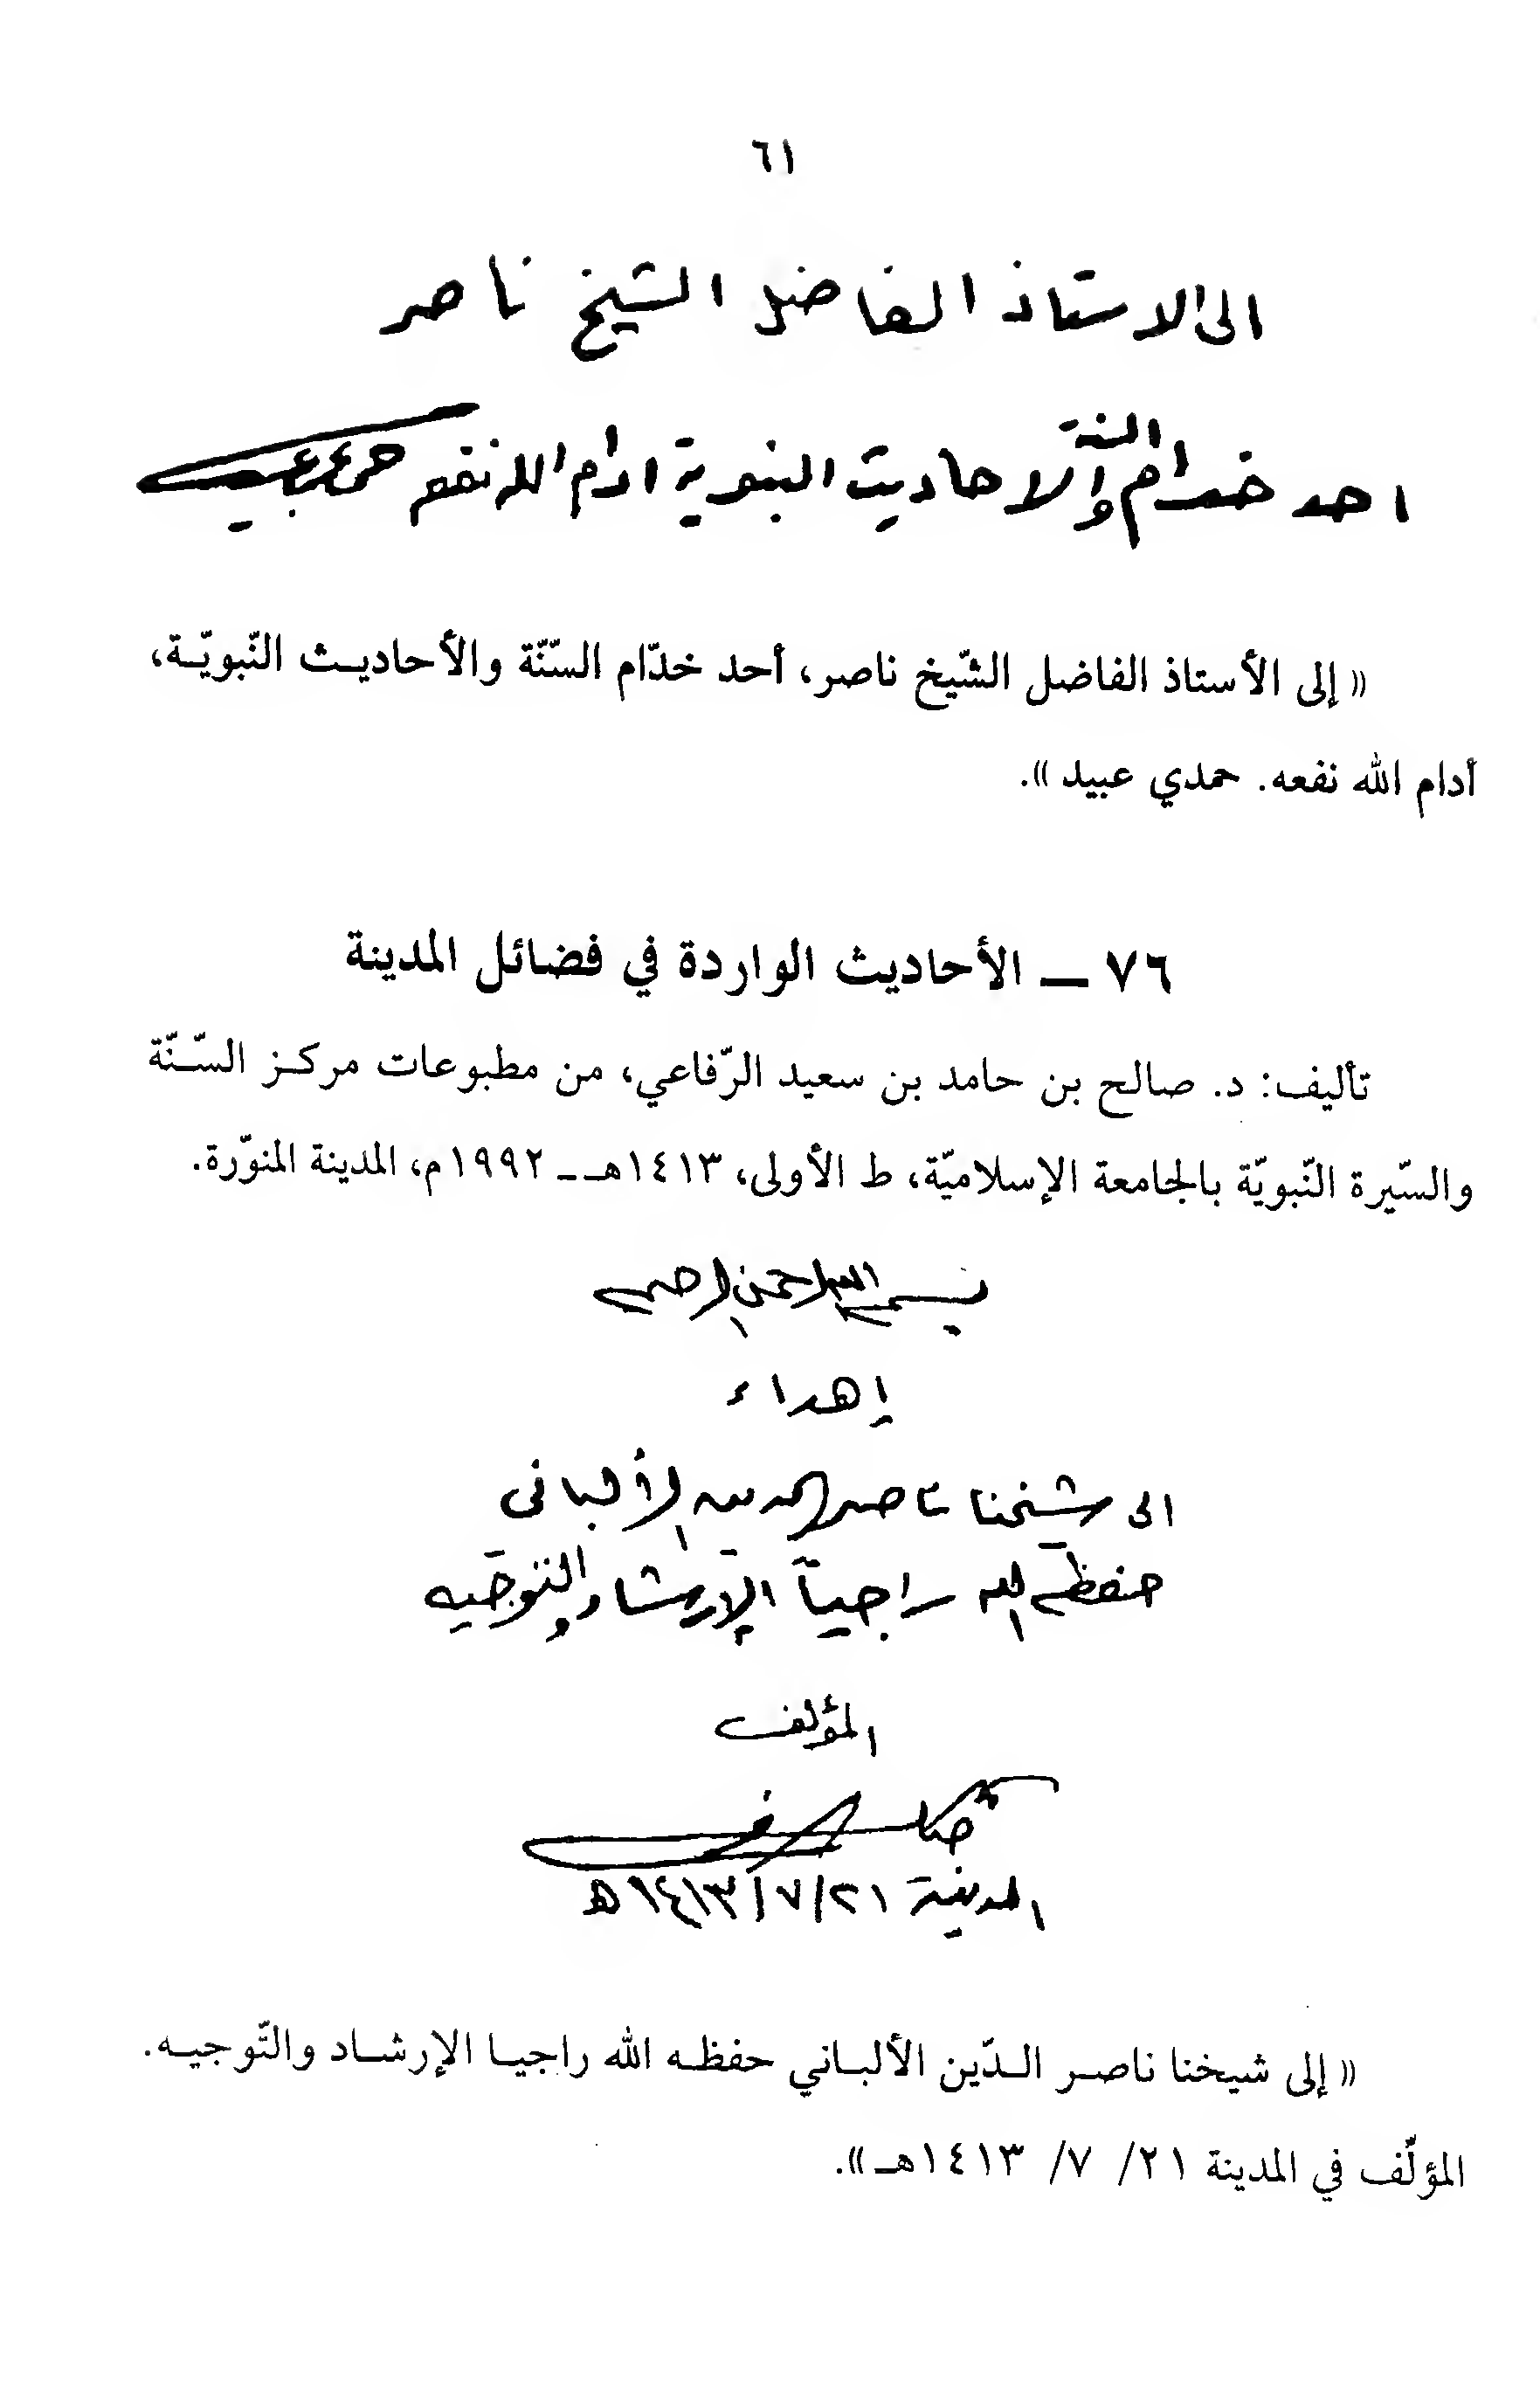 ٦١
الى الاستاذ الفاضل الشيخ ناصر
احد خدام السنة والاحاديث النبوية ادام الله نفعه حمدي عبيد
« إلى الأستاذ الفاضل الشّيخ ناصر، أحد خدّام السّنّة والأحاديث النّبويّة،
أدام الله نفعه. حمدي عبيد ».
٧٦ ـ الأحاديث الواردة في فضائل المدينة
تأليف: د. صالح بن حامد بن سعيد الرّفاعي، من مطبوعات مركز السّنّة
والسّيرة النّبويّة بالجامعة الإسلاميّة، ط الأولى، ١٤١٣هـ ـ ١٩٩٢م، المدينة المنوّرة.
بسم الله الرحمن الرحيم
إهداء
الى شيخنا ناصر الدين الألباني
حفظه الله راجياً الإرشاد والتوجيه
المؤلف
المدينة ٢١/٧/١٤١٣ه
« إلى شيخنا ناصر الدّين الألباني حفظه الله راجيا الإرشاد والتّوجيه.
المؤلّف في المدينة ٢١/ ٧/ ١٤١٣هـ ».